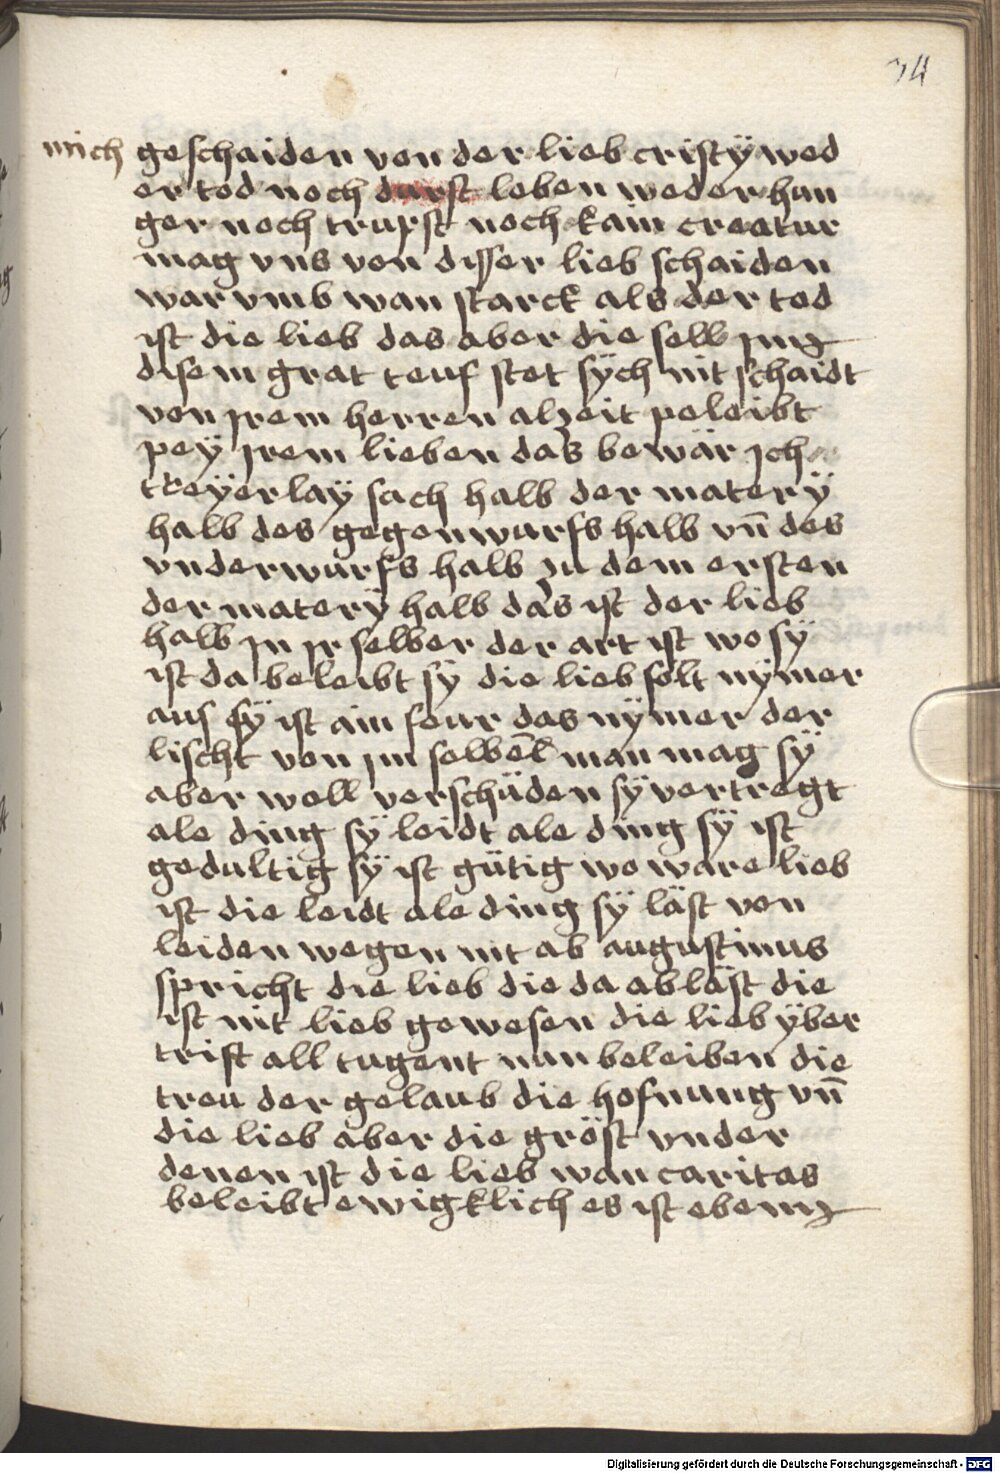 34
mich geschaiden von der lieb cristÿ wed
er tod noch durst leben weder hun
ger noch trupst noch kain creatur
mag vns von disser lieb schaiden
war vmb wan starck als der tod
ist die lieb das aber die sell jng
disem grat teuf stet sÿch nit schaidt
von jrem herren alzeit peleibt
peÿ jrem lieben das bewär jch
treÿerlaÿ sach halb der materÿ
halb des gegenwurfs halb vn̄ des
vnderwurfs halb zu dem ersten
der materÿ halb das ist der lieb
halb jn jr selber der art ist wo sÿ
ist da beleibt sÿ die lieb solt nÿmer
aus sÿ ist ain feur das nÿmer der
lischt von jm selber man mag sÿ
aber woll verschüden sÿ vertregt
ale ding sÿ leidt ale ding sÿ ist
gedultig sÿ ist gütig wo ware lieb
ist die leidt ale ding sÿ läst von
leiden wegen nit ab augustinus
spricht die lieb die da abläst die
ist nit lieb gewesen die lieb ÿber
trift all tugent nun beleiben die
treu der gelaub die hofnung vn̄
die lieb aber die gröst vnder
denen ist die lieb wan caritas
beleibt ewigklich es ist ebenng
Digitalisierung gefördert durch die Deutsche Forschungsgemeinschaft - DFG